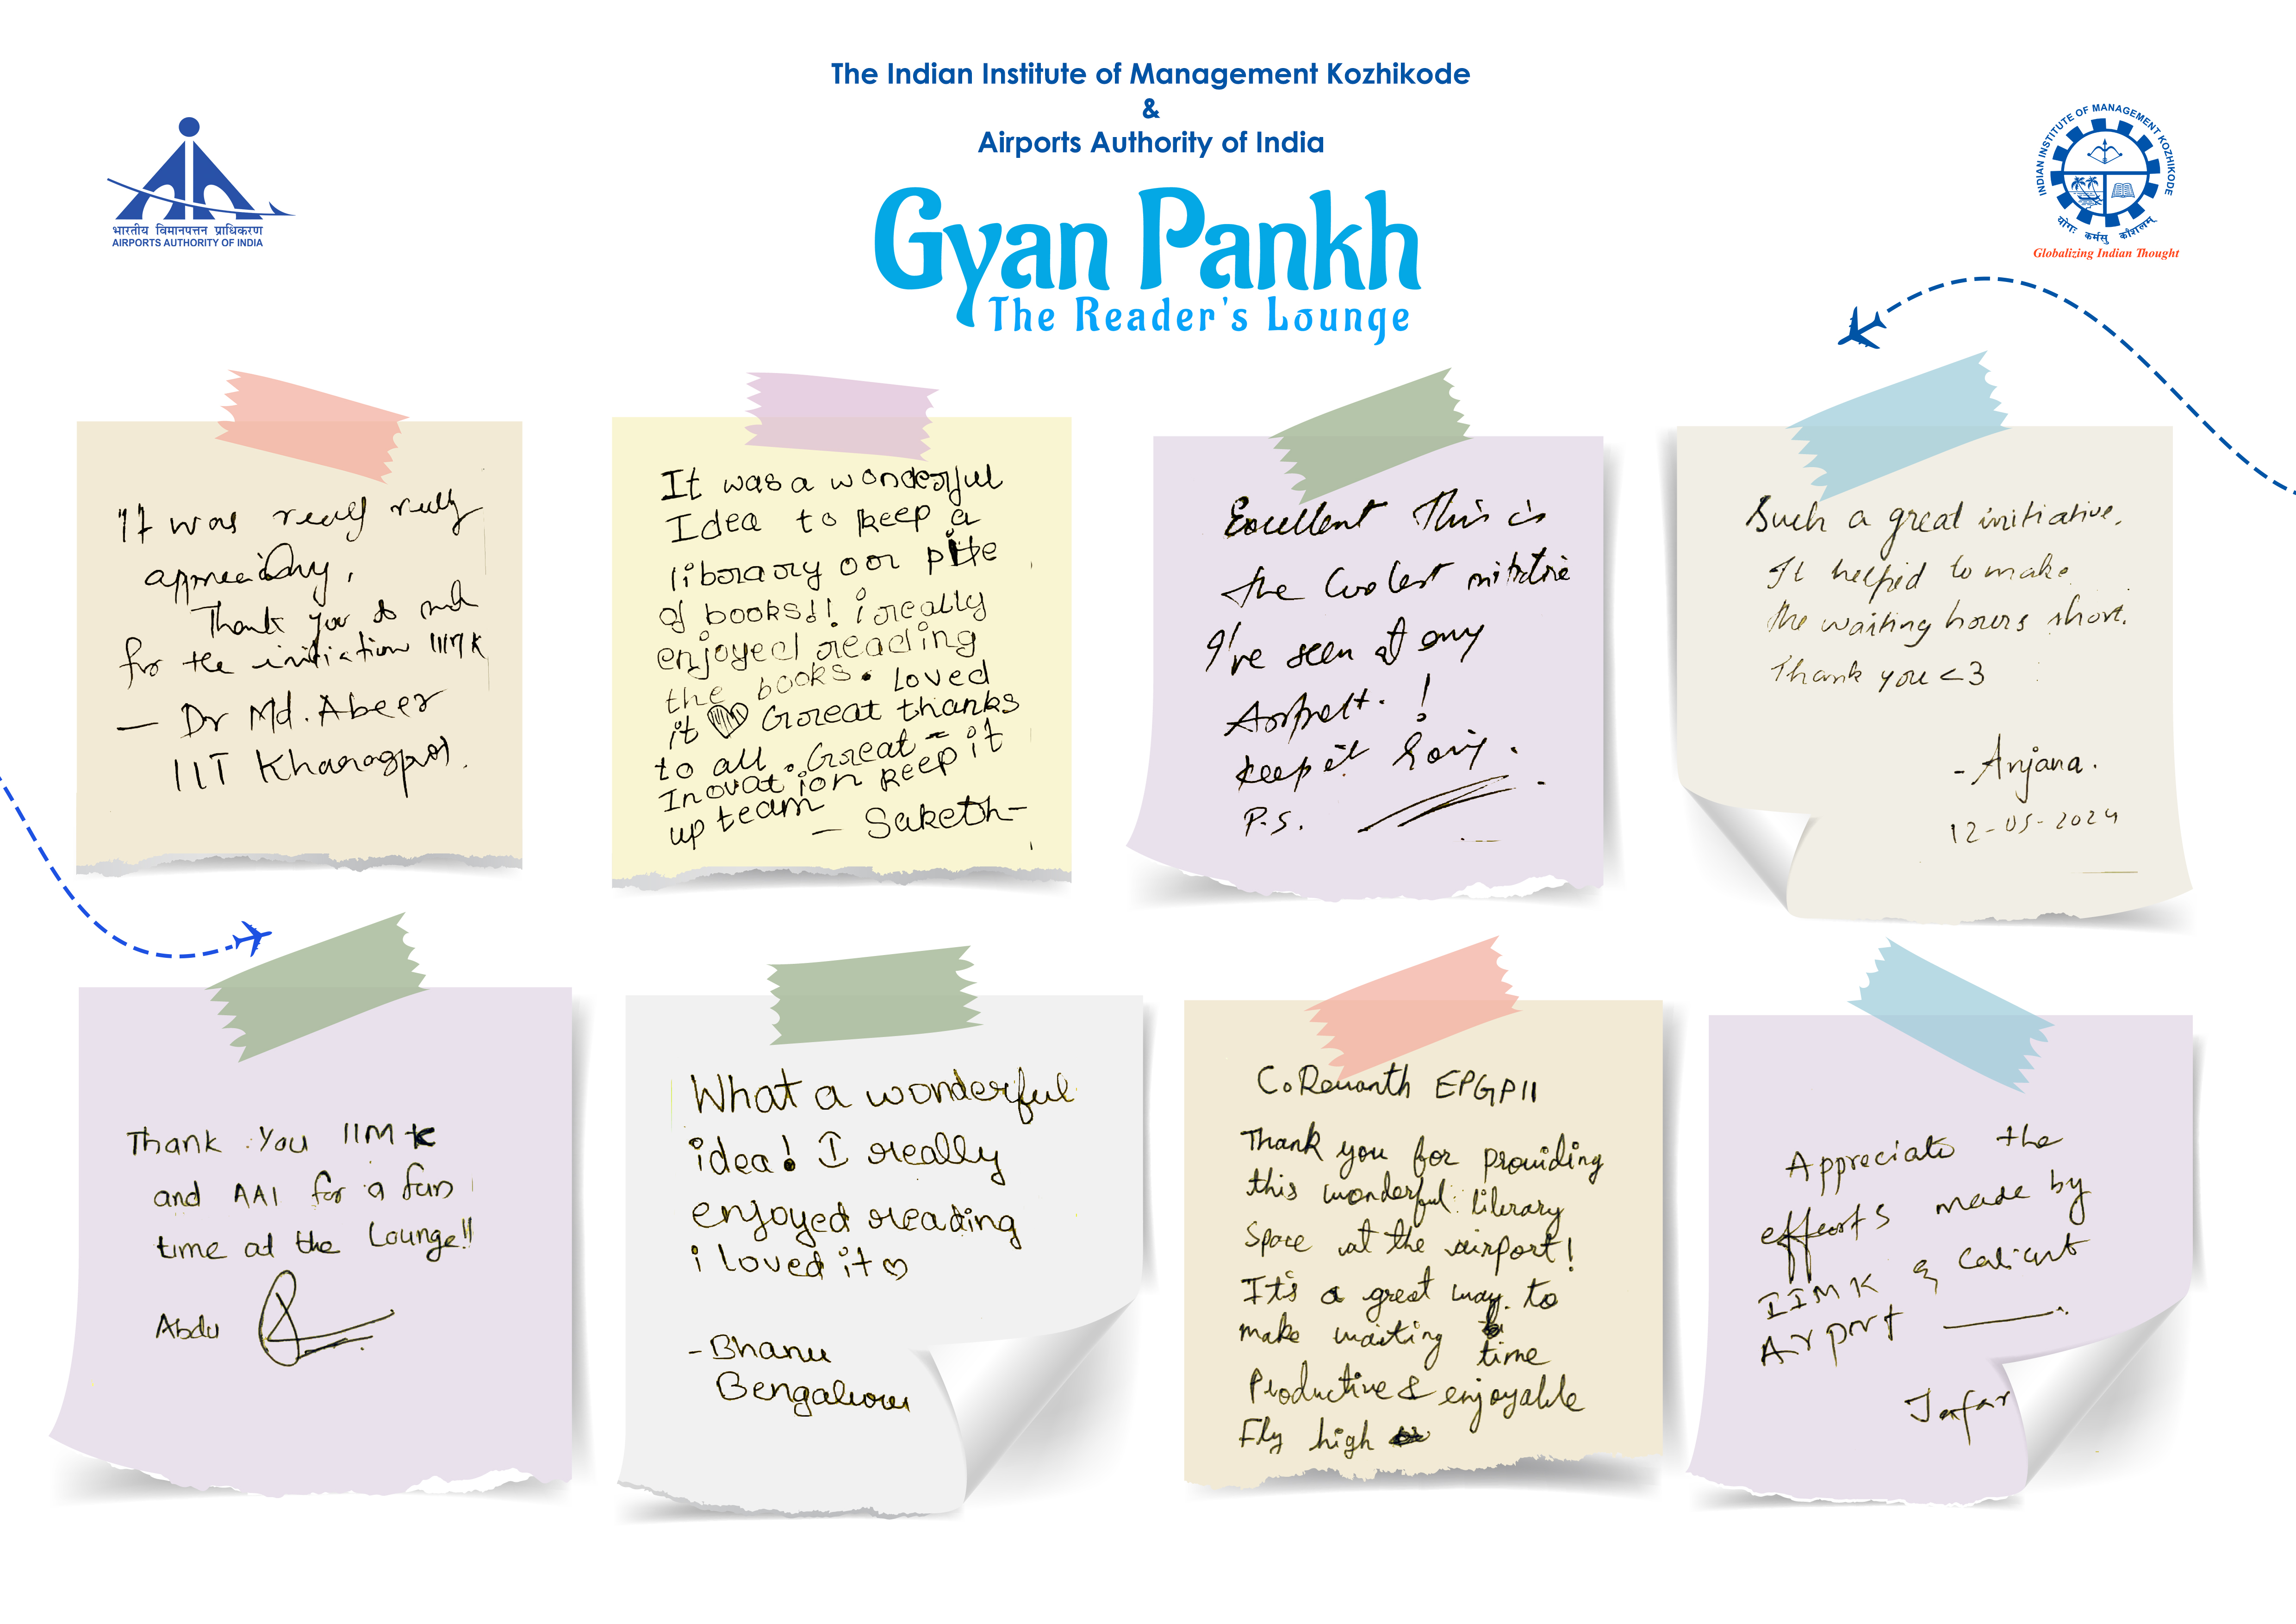 The Indian Institute of Management Kozhikode
&
Airports Authority of India
भारतीय विमानपत्तन प्राधिकरण
AIRPORTS AUTHORITY OF INDIA
INDIAN INSTITUTE OF MANAGEMENT KOZHIKODE
योगः कर्मसु कौशलम्
Globalizing Indian Thought
Gyan Pankh
The Reader's Lounge
It was really really
Thank you so much
for the initiation IIMK
— Dr Md. Abeer
IIT Kharagpur.
It was a wonderful
Idea to keep a
library oor
of books!! i really
enjoyed reading
the books. Loved
it Great thanks
to all. Great -
Inovation keep it
up team
— Saketh-
Excellent This is
the Coolest initiative
I've seen at any
Airport. !
keep it going.
P.S.
Such a great initiative.
It helped to make
the waiting hours short.
Thank you <3
- Anjana.
12-05-2024
Thank You IIMK
and AAI for a fun
time at the Lounge!!
Abdu
What a wonderful
idea! I really
enjoyed reading
i loved it ♡
- Bhanu
Bengaluru
EPGP11
Thank you for providing
this wonderful library
space at the airport!
It's a great way to
make waiting
time
Productive & enjoyable
Fly high
Appreciate the
efforts made by
IIMK & Calicut
Airport —.
Jafar